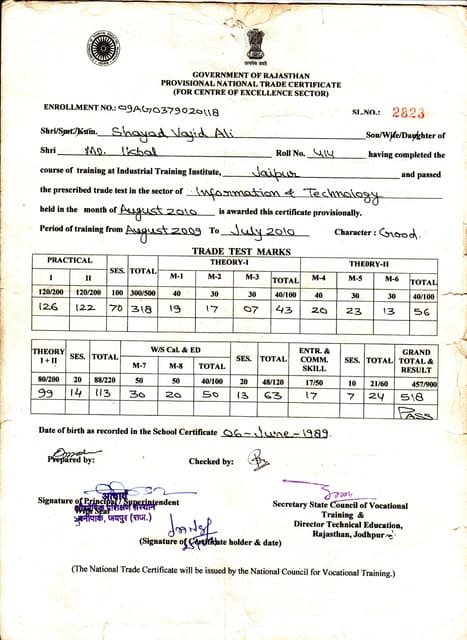 GOVERNMENT OF RAJASTHAN
PROVISIONAL NATIONAL TRADE CERTIFICATE
(FOR CENTRE OF EXCELLENCE SECTOR)
ENROLLMENT NO.: 09AG0379020118 SI.NO.: 2823
Shri/Smt./Kum. Shayad Vajid Ali Son/Wife/Daughter of
Shri MD. Ikbal Roll No. 414 having completed the
course of training at Industrial Training Institute, Jaipur and passed
the prescribed trade test in the sector of Information & Technology
held in the month of August 2010 is awarded this certificate provisionally.
Period of training from August 2009 To July 2010 Character : Good.
TRADE TEST MARKS
PRACTICAL SES. TOTAL THEORY-I THEORY-II
I II M-1 M-2 M-3 TOTAL M-4 M-5 M-6 TOTAL
120/200 120/200 100 300/500 40 30 30 40/100 40 30 30 40/100
126 122 70 318 19 17 07 43 20 23 13 56
THEORY I + II SES. TOTAL W/S Cal. & ED SES. TOTAL ENTR. & COMM. SKILL SES. TOTAL GRAND TOTAL & RESULT
M-7 M-8 TOTAL
80/200 20 88/220 50 50 40/100 20 48/120 17/50 10 21/60 457/900
99 14 113 30 20 50 13 63 17 7 24 518
PASS
Date of birth as recorded in the School Certificate 06-June-1989.
Prepared by: Checked by:
आचार्य
Signature of Principal / Superintendent
With Seal
औद्योगिक प्रशिक्षण संस्थान
जयपुर (राज.)
Secretary State Council of Vocational
Training &
Director Technical Education,
Rajasthan, Jodhpur
(Signature of Certificate holder & date)
(The National Trade Certificate will be issued by the National Council for Vocational Training.)